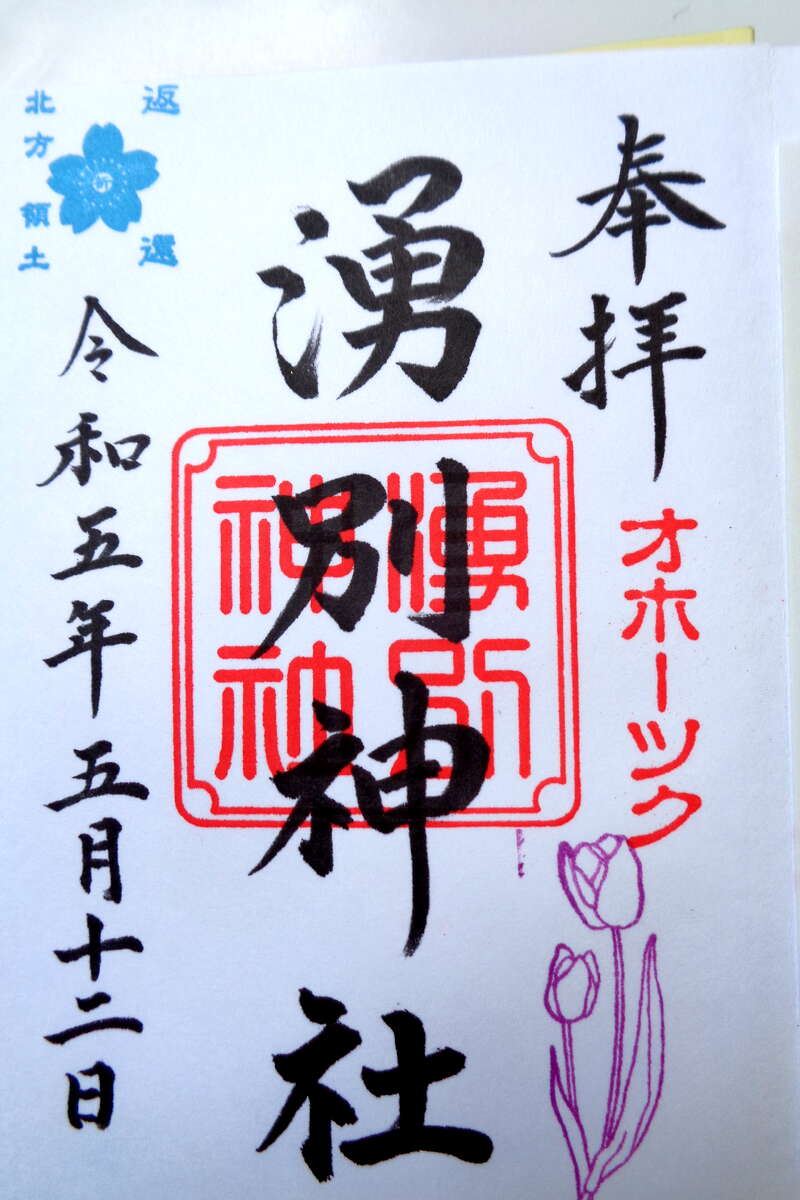 奉拝
オホーツク
湧別神社
湧別
神社
返還
北方領土
祈
令和五年五月十二日